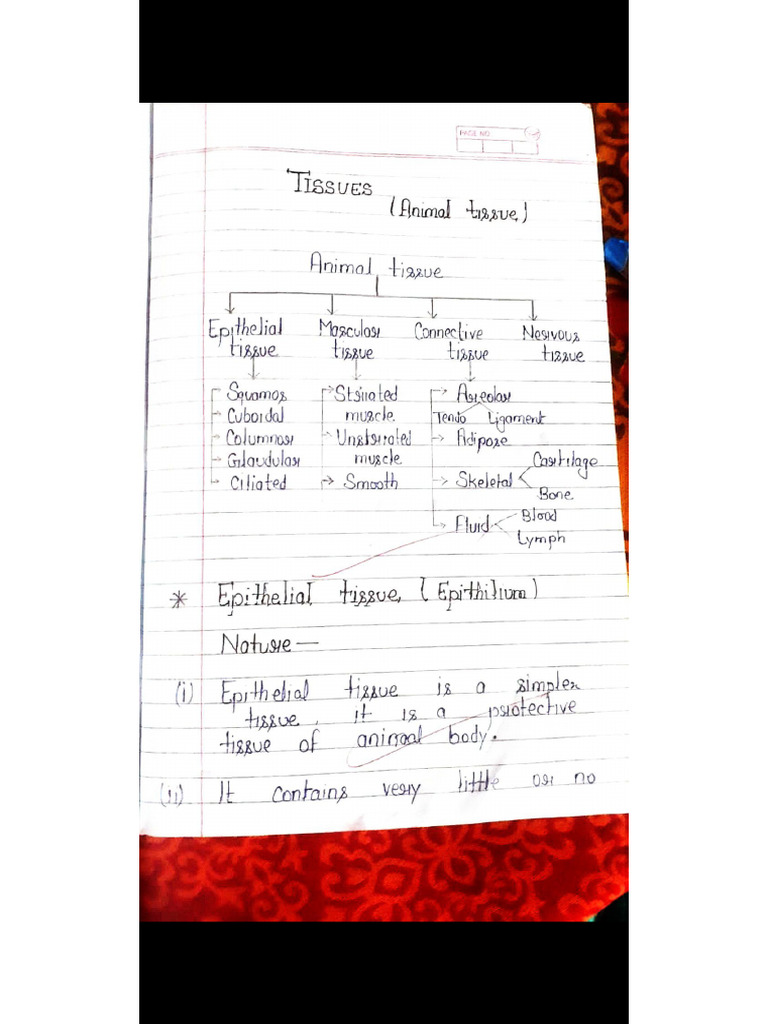 PAGE NO.
TISSUES
(Animal tissue)
Animal tissue
Epithelial tissue
Mascular tissue
Connective tissue
Nervous tissue
Squamos
Cuboidal
Columnar
Glaudular
Ciliated
Striated muscle
Unstriated muscle
Smooth
Areolar
Tendo Ligament
Adipose
Skeletal
Cartilage
Bone
Fluid
Blood
Lymph
* Epithelial tissue, (Epithilium)
Nature —
(i) Epithelial tissue is a simpler
tissue, it is a protective
tissue of animal body.
(ii) It contains very little or no